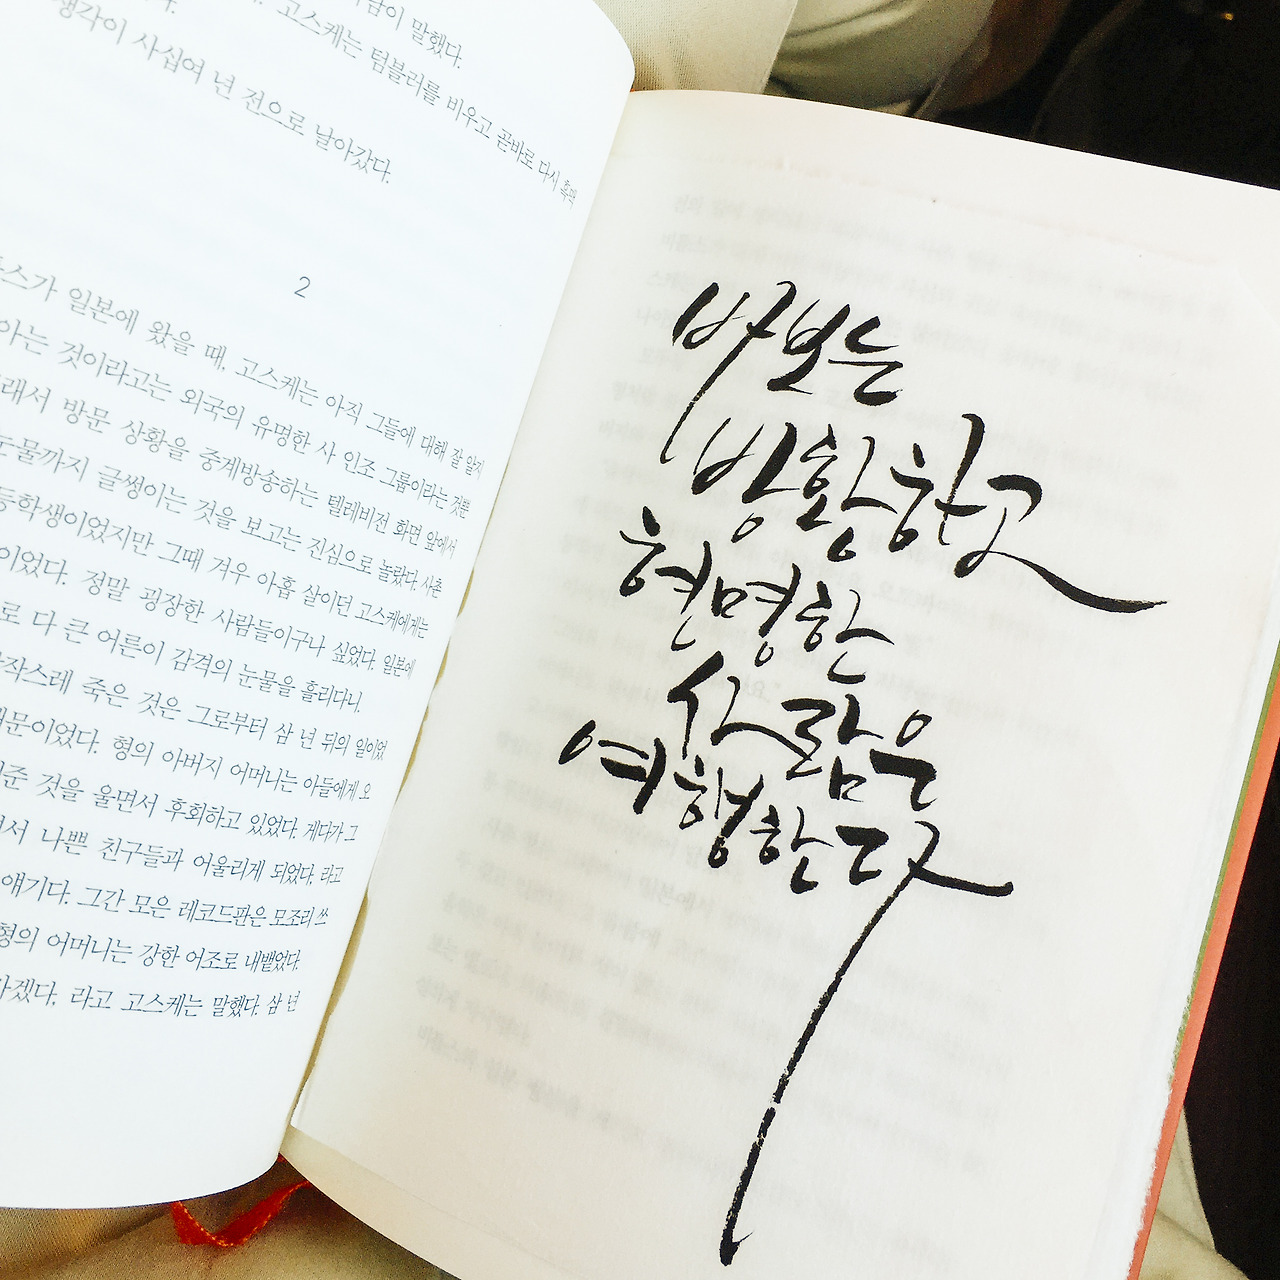 말했다.
고스케는 텀블러를 비우고 곧바로 다시 흑맥
생각이 사십여 년 전으로 날아갔다.
2
일본에 왔을 때, 고스케는 아직 그들에 대해 잘 알지
아는 것이라고는 외국의 유명한 사 인조 그룹이라는 것뿐
래서 방문 상황을 중계방송하는 텔레비전 화면 앞에서
눈물까지 글썽이는 것을 보고는 진심으로 놀랐다. 사촌
등학생이었지만 그때 겨우 아홉 살이던 고스케에게는
이었다. 정말 굉장한 사람들이구나 싶었다. 일본에
로 다 큰 어른이 감격의 눈물을 흘리다니.
작스레 죽은 것은 그로부터 삼 년 뒤의 일이었
때문이었다. 형의 아버지 어머니는 아들에게 오
준 것을 울면서 후회하고 있었다. 게다가 그
서 나쁜 친구들과 어울리게 되었다, 라고
얘기다. 그간 모은 레코드판은 모조리 쓰
형의 어머니는 강한 어조로 내뱉었다.
겠다, 라고 고스케는 말했다. 삼 년
바보는
방황하고
현명한
사람은
여행한다